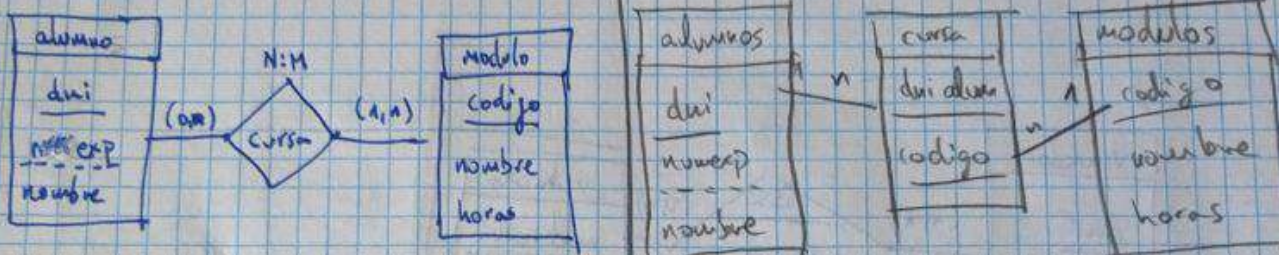 alumno
dni
exp
nombre
(0,n)
N:M
cursa
(1,n)
modulo
codigo
nombre
horas
alumnos
dni
numexp
nombre
1
n
cursa
dni alum
codigo
n
1
modulos
codigo
nombre
horas